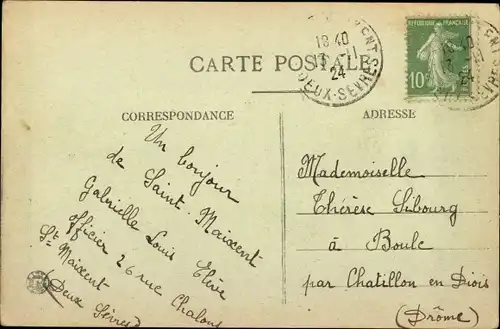 CARTE POSTALE
ENT
18 40
17 - 11
24
DEUX-SÈVRES
REPUBLIQUE FRANÇAISE
10c
CORRESPONDANCE
ADRESSE
Un bonjour
de Saint-Maixent
Gabrielle Louis Elève
officier 26 rue Chalons
St Maixent
(Deux Sèvres)
Mademoiselle
Thérèse Sibourg
à Boulc
par Chatillon en Diois
(Drôme)